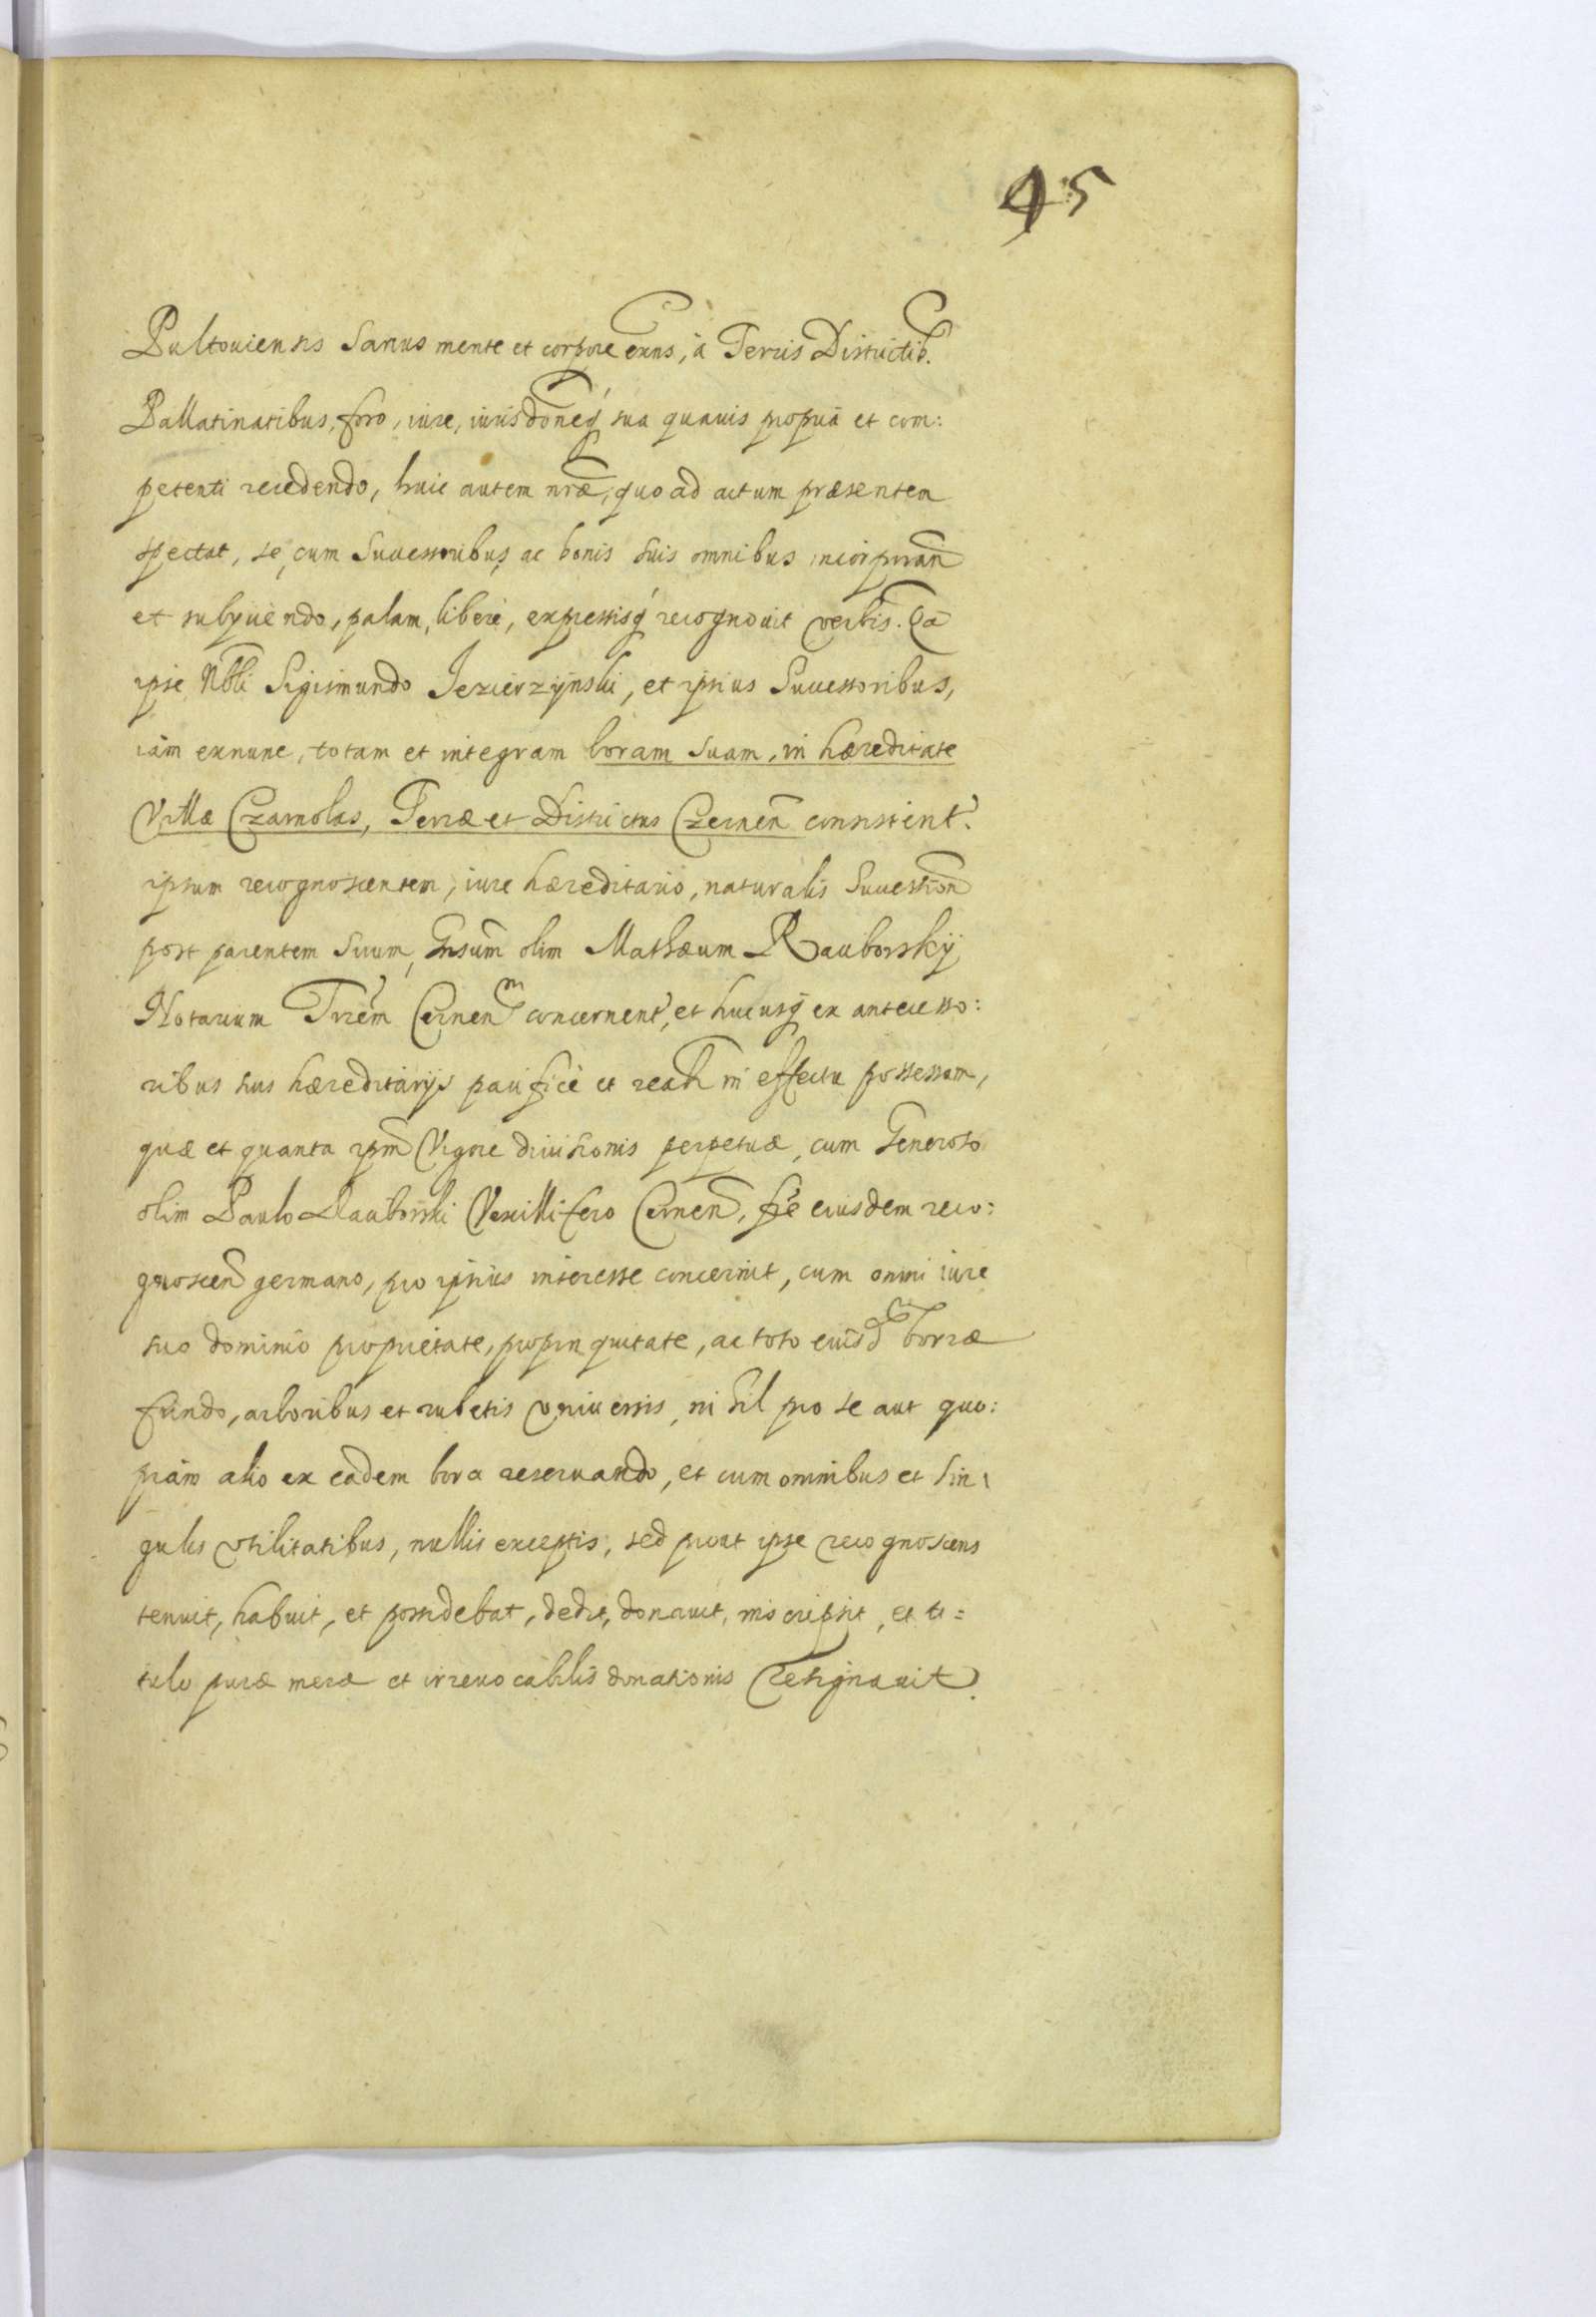 45
Pultouiensis sanus mente et corpore exns, à Terris Districtib.
Pallatinatibus, foro, iure, iurisdõneq́ sua quauis propria et com:
petenti recedendo, huic autem nræ, quo ad actum præsentem
spectat, se, cum Successoribus, ac bonis suis omnibus incorporañ
et subyciendo, palam, liberè, expressisq́ recognouit verbis. Qa
ipse Nbli Sigismundo Jezierzÿnski, et ipsius Successoribus,
iàm exnunc, totam et integram boram suam, in hæreditate
Villæ Czarnolas, Terræ et Districtus Czernen̄ consistent.
ipsum recognoscentem, iure hæreditario, naturalis Successioñ
post parentem suum, Gnsum̃ olim Mathæum Raciborskÿ
Notarium Trrem̃ Cernen̄ concernent, et hucusq́ ex antecesso:
ribus suis hæreditarÿs pacificè et realr̃ in effectu possessam,
quæ et quanta ipm̃ vigore diuisionis perpetuæ, cum Generoso
olim Paulo Raciborski Vexillifero Cernen̄, fr̃e eiusdem reco:
gnoscen̄ germano, pro ipsius interesse concernit, cum omni iure
suo dominio proprietate, propinquitate, ac toto eiusd̃ borræ
fundo, arboribus et rubetis vniuersis, nihil pro se aut quo:
piàm alio ex eadem bora reseruando, et cum omnibus et sin:
gulis vtilitatibus, nullis exceptis, sed prout ipse recognoscens
tenuit, habuit, et possidebat, dedit, donauit, inscripsit, et ti=
tulo puræ meræ et irreuocabilis donationis resignauit.